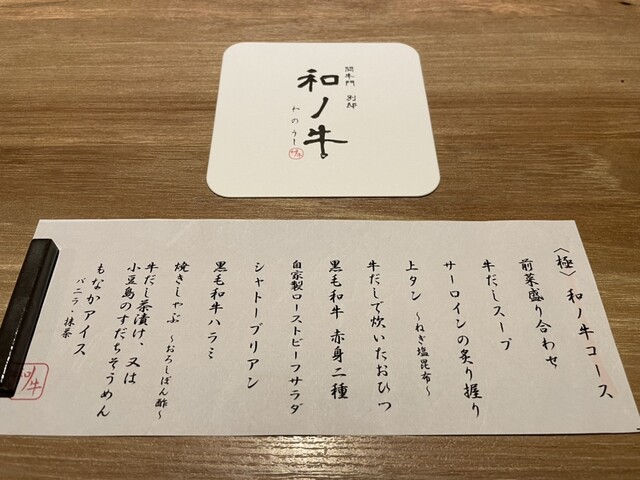 関本門 別邸
和ノ牛
わのうし
〈極〉和ノ牛コース
前菜盛り合わせ
牛だしスープ
サーロインの炙り握り
上タン 〜ねぎ塩昆布〜
牛だしで炊いたおひつ
黒毛和牛 赤身二種
自家製ローストビーフサラダ
シャトーブリアン
黒毛和牛ハラミ
焼きしゃぶ 〜おろしぽん酢〜
牛だし茶漬け、又は
小豆島のすだちそうめん
もなかアイス
バニラ・抹茶